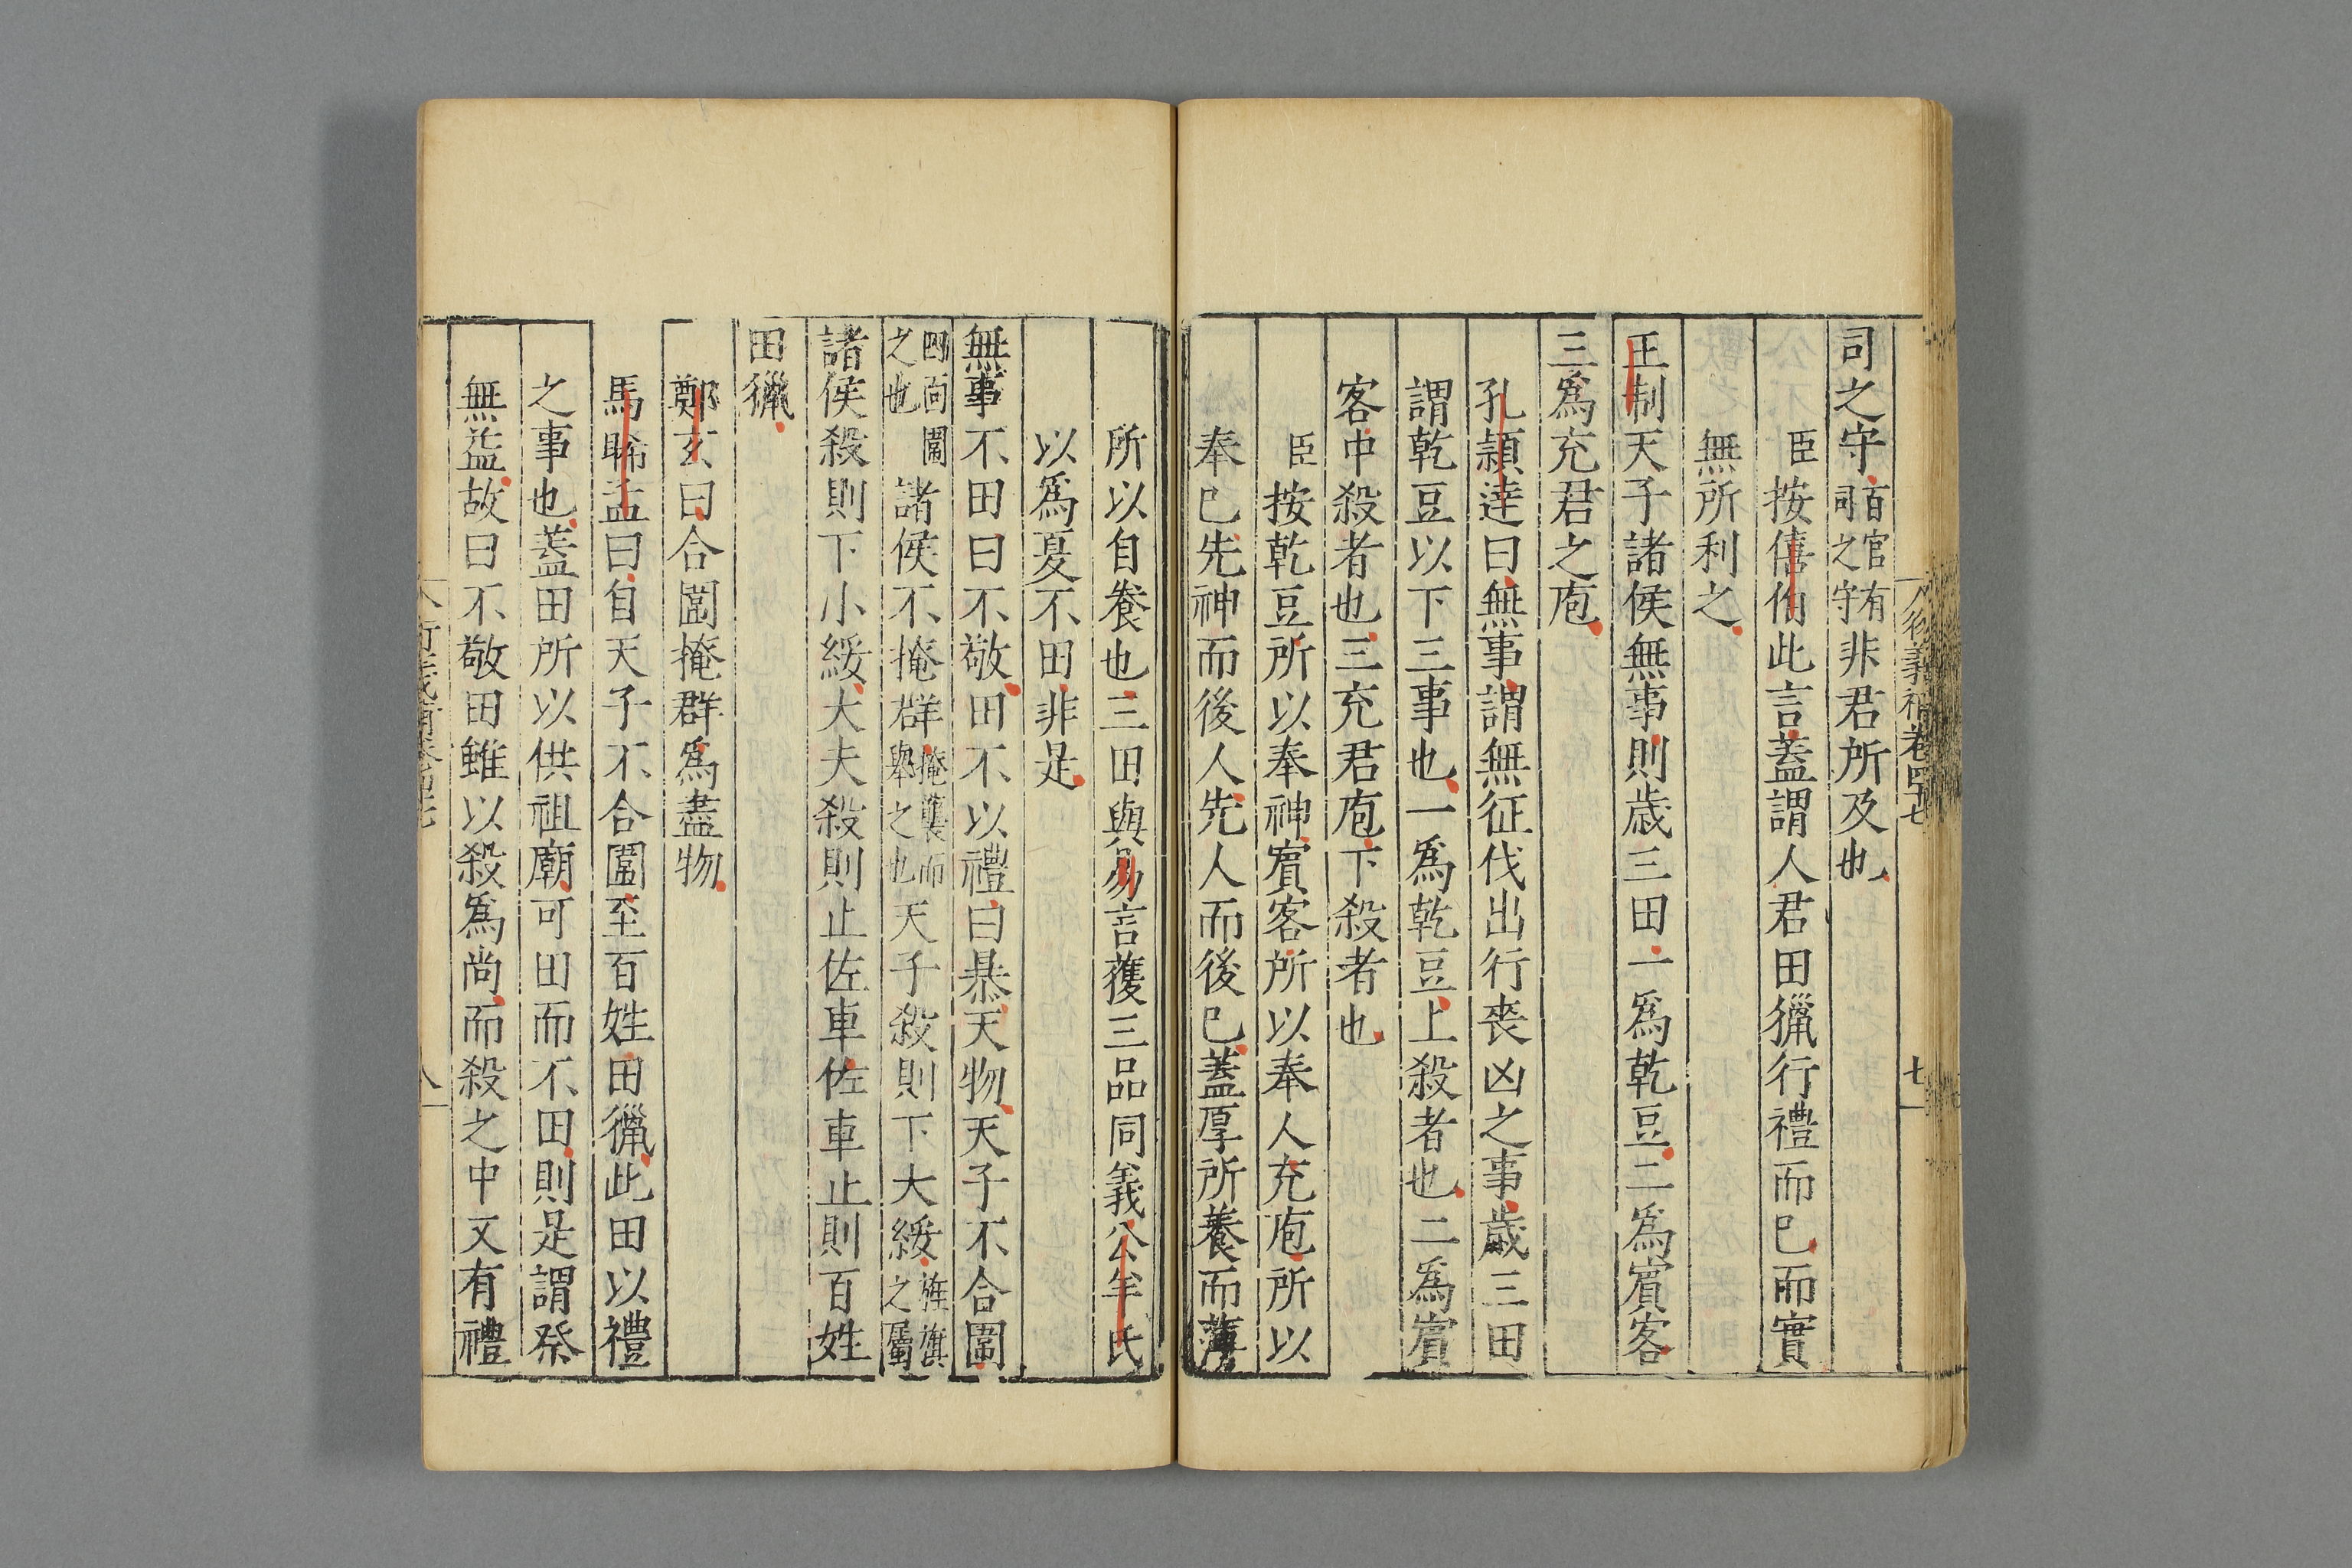 司之守百官有司之守非君所及也
臣按僖伯此言蓋謂人君田獵行禮而已而實
無所利之
王制天子諸侯無事則歲三田一爲乾豆二爲賔客
三爲充君之庖
孔頴達曰無事謂無征伐出行喪凶之事歲三田
謂乾豆以下三事也一爲乾豆上殺者也二爲賔
客中殺者也三充君庖下殺者也
按乾豆所以奉神賔客所以奉人充庖所以
奉已先神而後人先人而後已蓋厚所養而薄
所以自養也三田與易言獲三品同義公羊氏
以爲夏不田非是
無事不田曰不敬田不以禮曰暴天物天子不合圍
四面圍之也諸侯不掩群掩襲而舉之也天子殺則下大綏旌旗之屬
諸侯殺則下小綏大夫殺則止佐車佐車止則百姓
田獵
鄭玄曰合圍掩群爲盡物
馬晞孟曰自天子不合圍至百姓田獵此田以禮
之事也蓋田所以供祖廟可田而不田則是謂祭
無益故曰不敬田雖以殺爲尚而殺之中又有禮